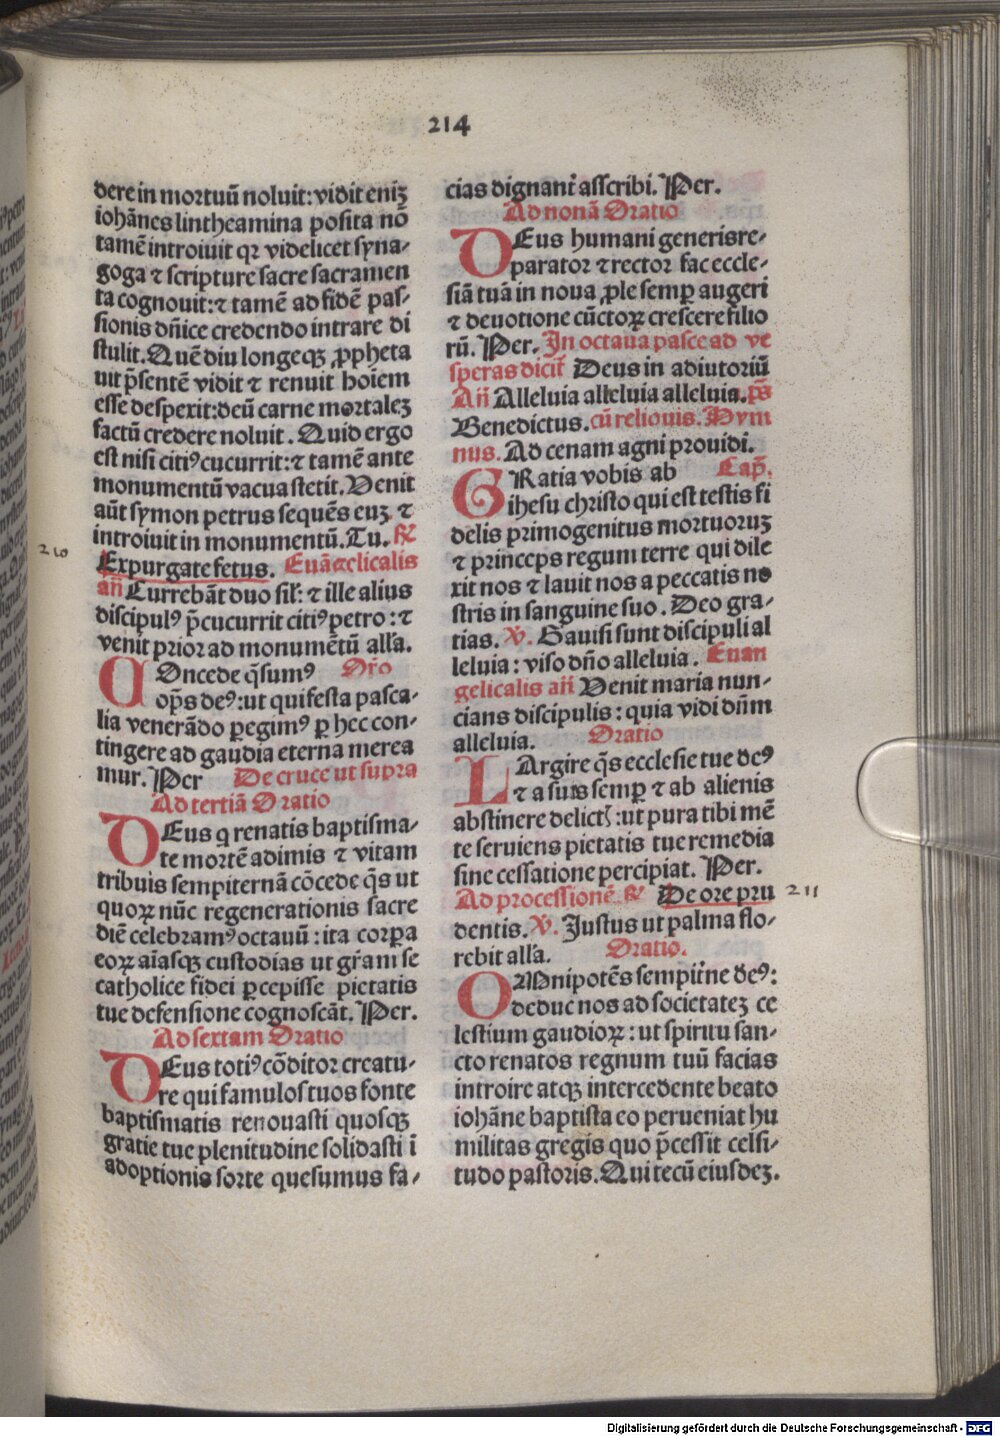 214
dere in mortuū noluit: vidit eniꝫ
iohānes lintheamina posita nō
tamē introiuit qꝛ videlicet syna⸗
goga ⁊ scripture sacre sacramen
ta cognouit: ⁊ tamē ad fidē pas⸗
sionis dn̄ice credendo intrare di
stulit. Quē diu longeqꝫ ꝓpheta
uit p̄sentē vidit ⁊ renuit hoīem
esse despexit: deū carne mortaleꝫ
factū credere noluit. Quid ergo
est nisi citiꝰ cucurrit: ⁊ tamē ante
monumentū vacua stetit. Venit
aūt symon petrus sequēs euꝫ ⁊
introiuit in monumentū. Tu. ℞
210
Expurgate fetus. Euāgelicalis
an̄ Currebāt duo sil: ⁊ ille alius
discipulꝰ p̄cucurrit citiꝰ petro: ⁊
venit prior ad monumētū alľa.
COncede q̄sumꝰ Orō
op̄s deꝰ: ut qui festa pasca⸗
lia venerādo ꝑegimꝰ ꝑ hec con⸗
tingere ad gaudia eterna merea
mur. Per De cruce ut supra
Ad tertiā Oratio
DEus q̇ renatis baptisma⸗
te mortē adimis ⁊ vitam
tribuis sempiternā cōcede q̄s ut
quoꝝ nūc regenerationis sacre
diē celebramꝰ octauū: ita corꝑa
eoꝝ aīasqꝫ custodias ut gr̄am se
catholice fidei ꝑcepisse pietatis
tue defensione cognoscāt. Per.
Ad sextam Oratio
DEus totiꝰ cōditor creatu⸗
re qui famulos tuos fonte
baptismatis renouasti quosqꝫ
gratie tue plenitudine solidasti ī
adoptionis sorte quesumus fa⸗
cias dignant᷑ asscribi. Per.
Ad nonā Oratio
DEus humani generis re⸗
parator ⁊ rector fac eccle⸗
siā tuā in noua ꝓle semꝑ augeri
⁊ deuotione cūctoꝝ crescere filio
rū. Per. In octaua pasce ad ve
speras dicit᷑ Deus in adiutoriū
An̄ Alleluia alleluia alleluia. ps̄
Benedictus. cū reliquis. Hym
nus. Ad cenam agni prouidi.
GRatia vobis ab Cap̄.
ihesu christo qui est testis fi
delis primogenitus mortuoruꝫ
⁊ princeps regum terre qui dile
xit nos ⁊ lauit nos a peccatis no
stris in sanguine suo. Deo gra⸗
tias. ℣. Gauisi sunt discipuli al
leluia: viso dn̄o alleluia. Euan
gelicalis an̄ Venit maria nun⸗
cians discipulis: quia vidi dn̄m
alleluia. Oratio
LArgire q̄s ecclesie tue deꝰ
⁊ a suis semꝑ ⁊ ab alienis
abstinere delictꝭ: ut pura tibi mē
te seruiens pietatis tue remedia
sine cessatione percipiat. Per.
Ad processionē ℞ De ore pru 211
dentis. ℣. Justus ut palma flo⸗
rebit alľa. Oratio.
OMnipotēs sempit̄ne deꝰ:
deduc nos ad societateꝫ ce
lestium gaudioꝝ: ut spiritu san⸗
cto renatos regnum tuū facias
introire atqꝫ intercedente beato
iohāne baptista eo perueniat hu
militas gregis quo p̄cessit celsi⸗
tudo pastoris. Qui tecū eiusdeꝫ.
Digitalisierung gefördert durch die Deutsche Forschungsgemeinschaft - DFG